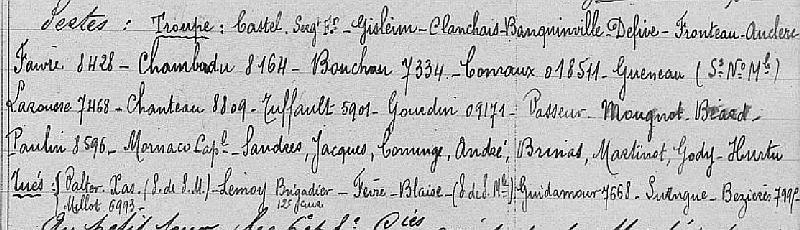 Pertes : Troupe : Castel. Sergt Fr - Gisleim - Clanchais - Banquinville - Defive - Fronteau - Auclerc
Favre 8428 - Chambadu 8164 - Bouchau 7334 - Comaux 018511 - Gueneau (Ss No Mle)
Larouere 7468 - Chanteau 8809 - Tuffault 5901 - Gourdin 09171 - Passeur - Mougnot Béard -
Paulin 8596 - Mornaco Capl - Sandres, Jacques, Cominge, André, Brunas, Martinot, Gody - Hurtu
Tués : Palter Xas. (S. de S.M.) - Lemoy Brigadier - Feire - Blaise - (S de S. Mle) Guidamour 7668 - Surengue - Bezieres 7992
Millot 6993 - 12e